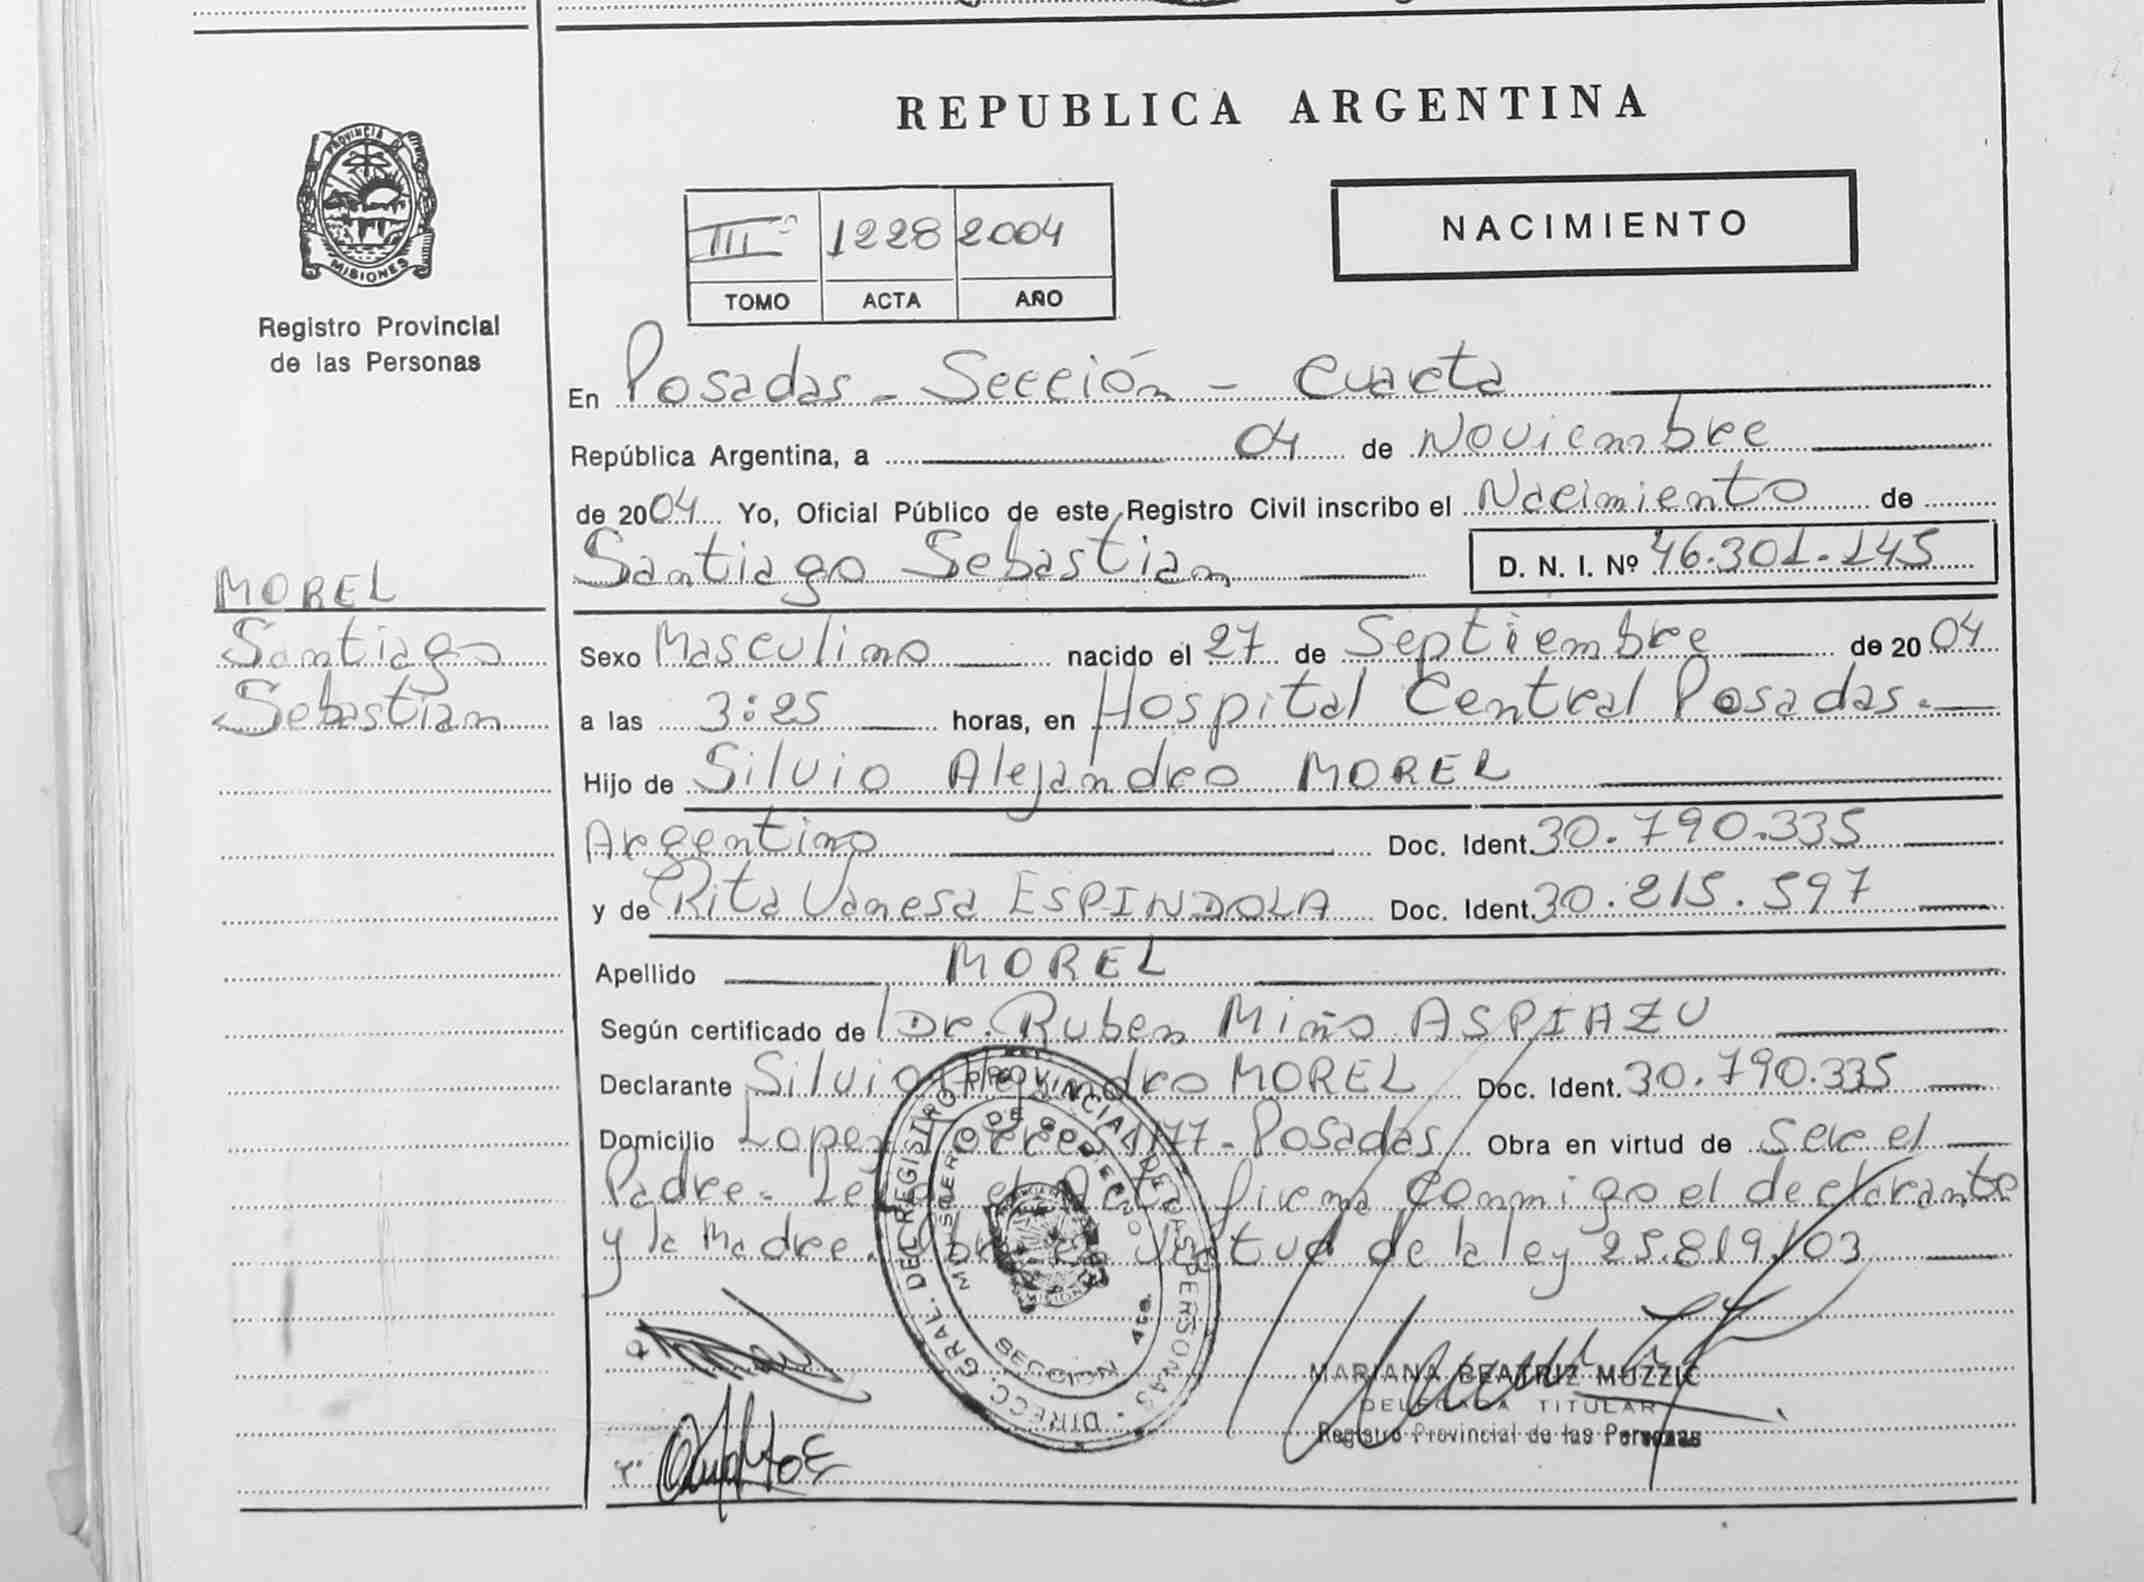 REPUBLICA ARGENTINA
PROVINCIA DE
MISIONES
Registro Provincial
de las Personas
NACIMIENTO
III 1228 2004
TOMO ACTA AÑO
En Posadas - Sección - Cuarta
República Argentina, a 04 de Noviembre
de 2004 Yo, Oficial Público de este Registro Civil inscribo el Nacimiento de
Santiago Sebastian D. N. I. Nº 46.301.145
MOREL
Santiago
Sebastian
Sexo Masculino nacido el 27 de Septiembre de 2004
a las 3:25 horas, en Hospital Central Posadas.
Hijo de Silvio Alejandro MOREL
Argentino Doc. Ident. 30.790.335
y de Rita Vanesa ESPINDOLA Doc. Ident. 30.215.597
Apellido MOREL
Según certificado de Dr. Ruben Miño ASPIAZU
Declarante Silvio Alejandro MOREL Doc. Ident. 30.790.335
Domicilio Lopez Torres 4177 - Posadas Obra en virtud de Ser el
Padre - el Acta firma conmigo el declarante
y la Madre. virtud de la ley 25.819/03
DIRECC. GRAL. DEL REGISTRO PROVINCIAL DE LAS PERSONAS
MINISTERIO DE GOBIERNO
SECCION 4ta.
MARIANA BEATRIZ MUZZIC
DELEGADA TITULAR
Registro Provincial de las Personas